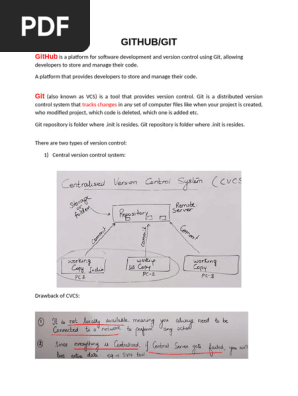 PDF
GITHUB/GIT
GitHub is a platform for software development and version control using Git, allowing
developers to store and manage their code.
A platform that provides developers to store and manage their code.
Git (also known as VCS) is a tool that provides version control. Git is a distributed version
control system that tracks changes in any set of computer files like when your project is created,
who modified project, which code is deleted, which one is added etc.
Git repository is folder where .init is resides. Git repository is folder where .init is resides.
There are two types of version control:
1) Central version control system:
Centralised Version Control System (CVCS
Storage
folder
Repository
Remote
Server
Commit
Commit
Commit
Working
Copy India
PC-1
Working
Copy
PC-2
Working
Copy
PC-3
Drawback of CVCS:
① It is not locally available, meaning you always need to be
Connected to a network to perform any action
② Since everything is Centralized, if Central Server gets failed, you will
lose entire data eg → SVN tool